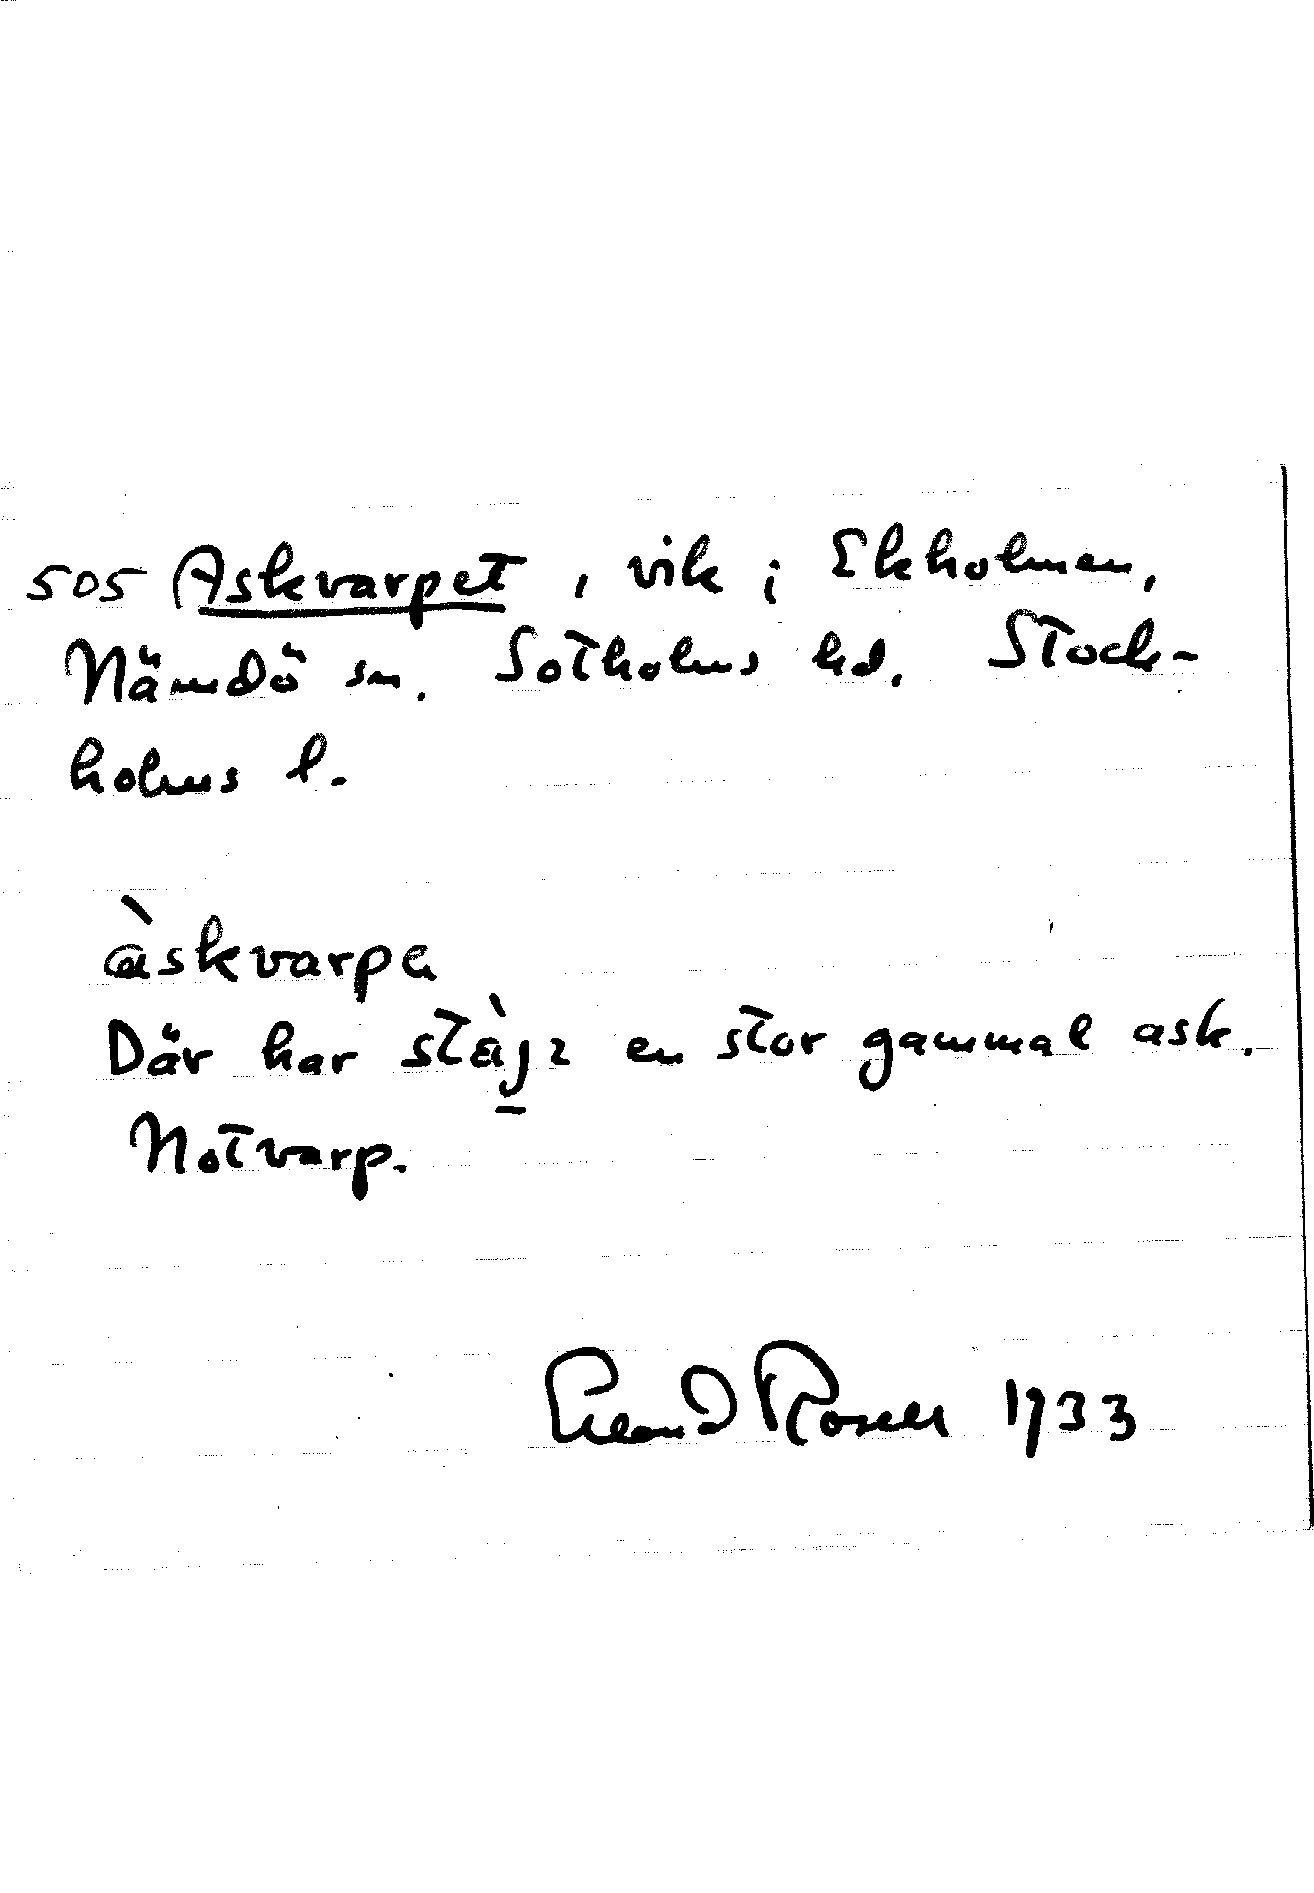 505 Askvarpet, vik i Ekholmen,
Nämdö sn. Sotholms hd. Stock-
holms l.
àskvarpe
Där har en stor gammal ask.
Notvarp.
Erland Rosell 1933